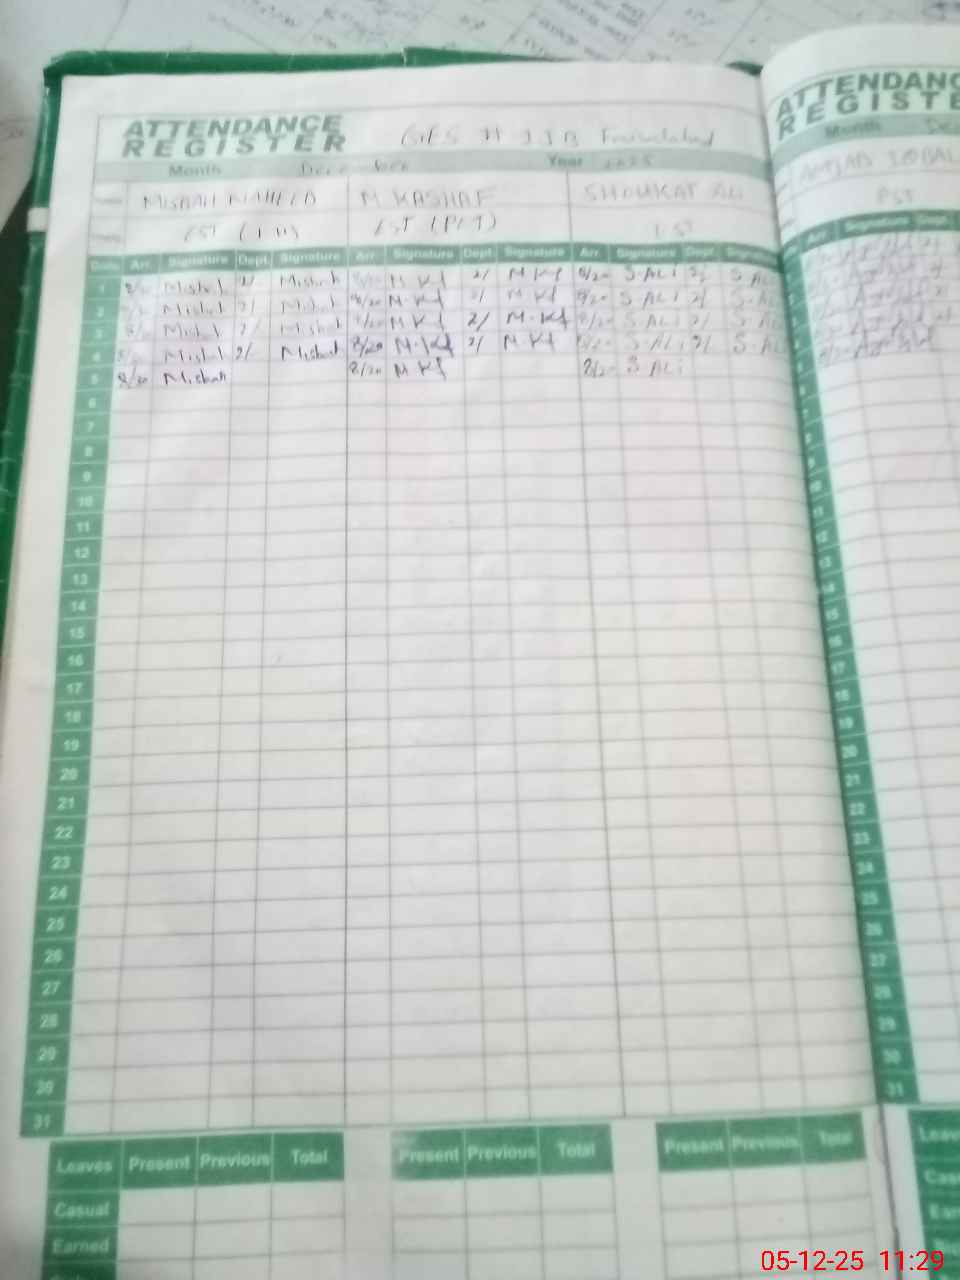 ATTENDANCE REGISTER
Month December Year 2025
MISBAH NAHEED M KASHAF SHOUKAT ALI
EST EST EST
Date Arr. Signature Dept. Signature Arr. Signature Dept. Signature Arr. Signature Dept. Signature
1 8/20 Misbah 2/ Misbah 8/20 M Kf 2/ M Kf 8/20 S.ALi 2/ S.ALi
2 Misbah 2/ Misbah 8/20 M.Kf 2/ M Kf 8/20 S ALi 2/ S.ALi
3 8/20 Misbah 2/ Misbah 8/20 M Kf 2/ M.Kf 8/20 S ALi 2/ S.ALi
4 8/20 Misbah 2/ Misbah 8/20 M.Kf 2/ M Kf 8/20 S.ALi 2/ S.ALi
5 8/20 Misbah 8/20 M Kf 8/20 S ALi
6
7
8
9
10
11
12
13
14
15
16
17
18
19
20
21
22
23
24
25
26
27
28
29
30
31
Leaves Present Previous Total Present Previous Total Present Previous Total
Casual
Earned
ATTENDANC
REGISTE
Month De
AMJAD IQBAL
PST
Arr. Signature Dept.
1
2
3
4
5
6
7
8
9
10
11
12
13
14
15
16
17
18
19
20
21
22
23
24
25
26
27
28
29
30
31
Leav
Cas
Ear
05-12-25 11:29